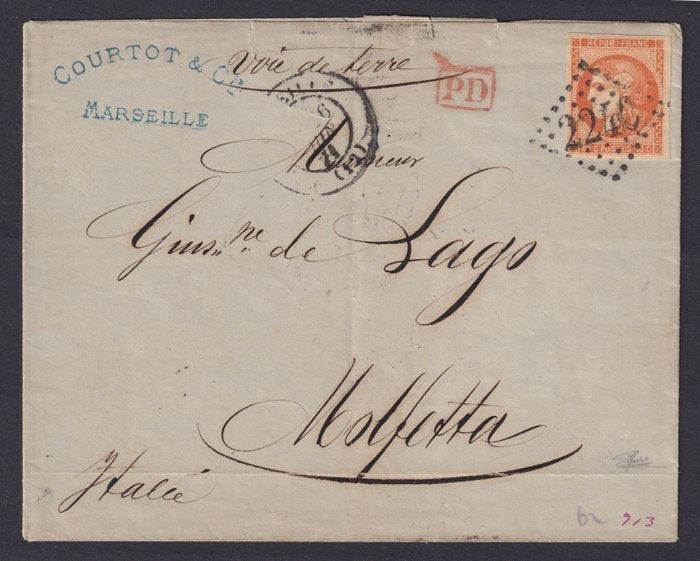 COURTOT & Cie
MARSEILLE
voie de terre
PD
REPUB FRANC
2240
6
71
(12)
Monsieur
Gius.pe de Lago
Molfetta
Italie
913